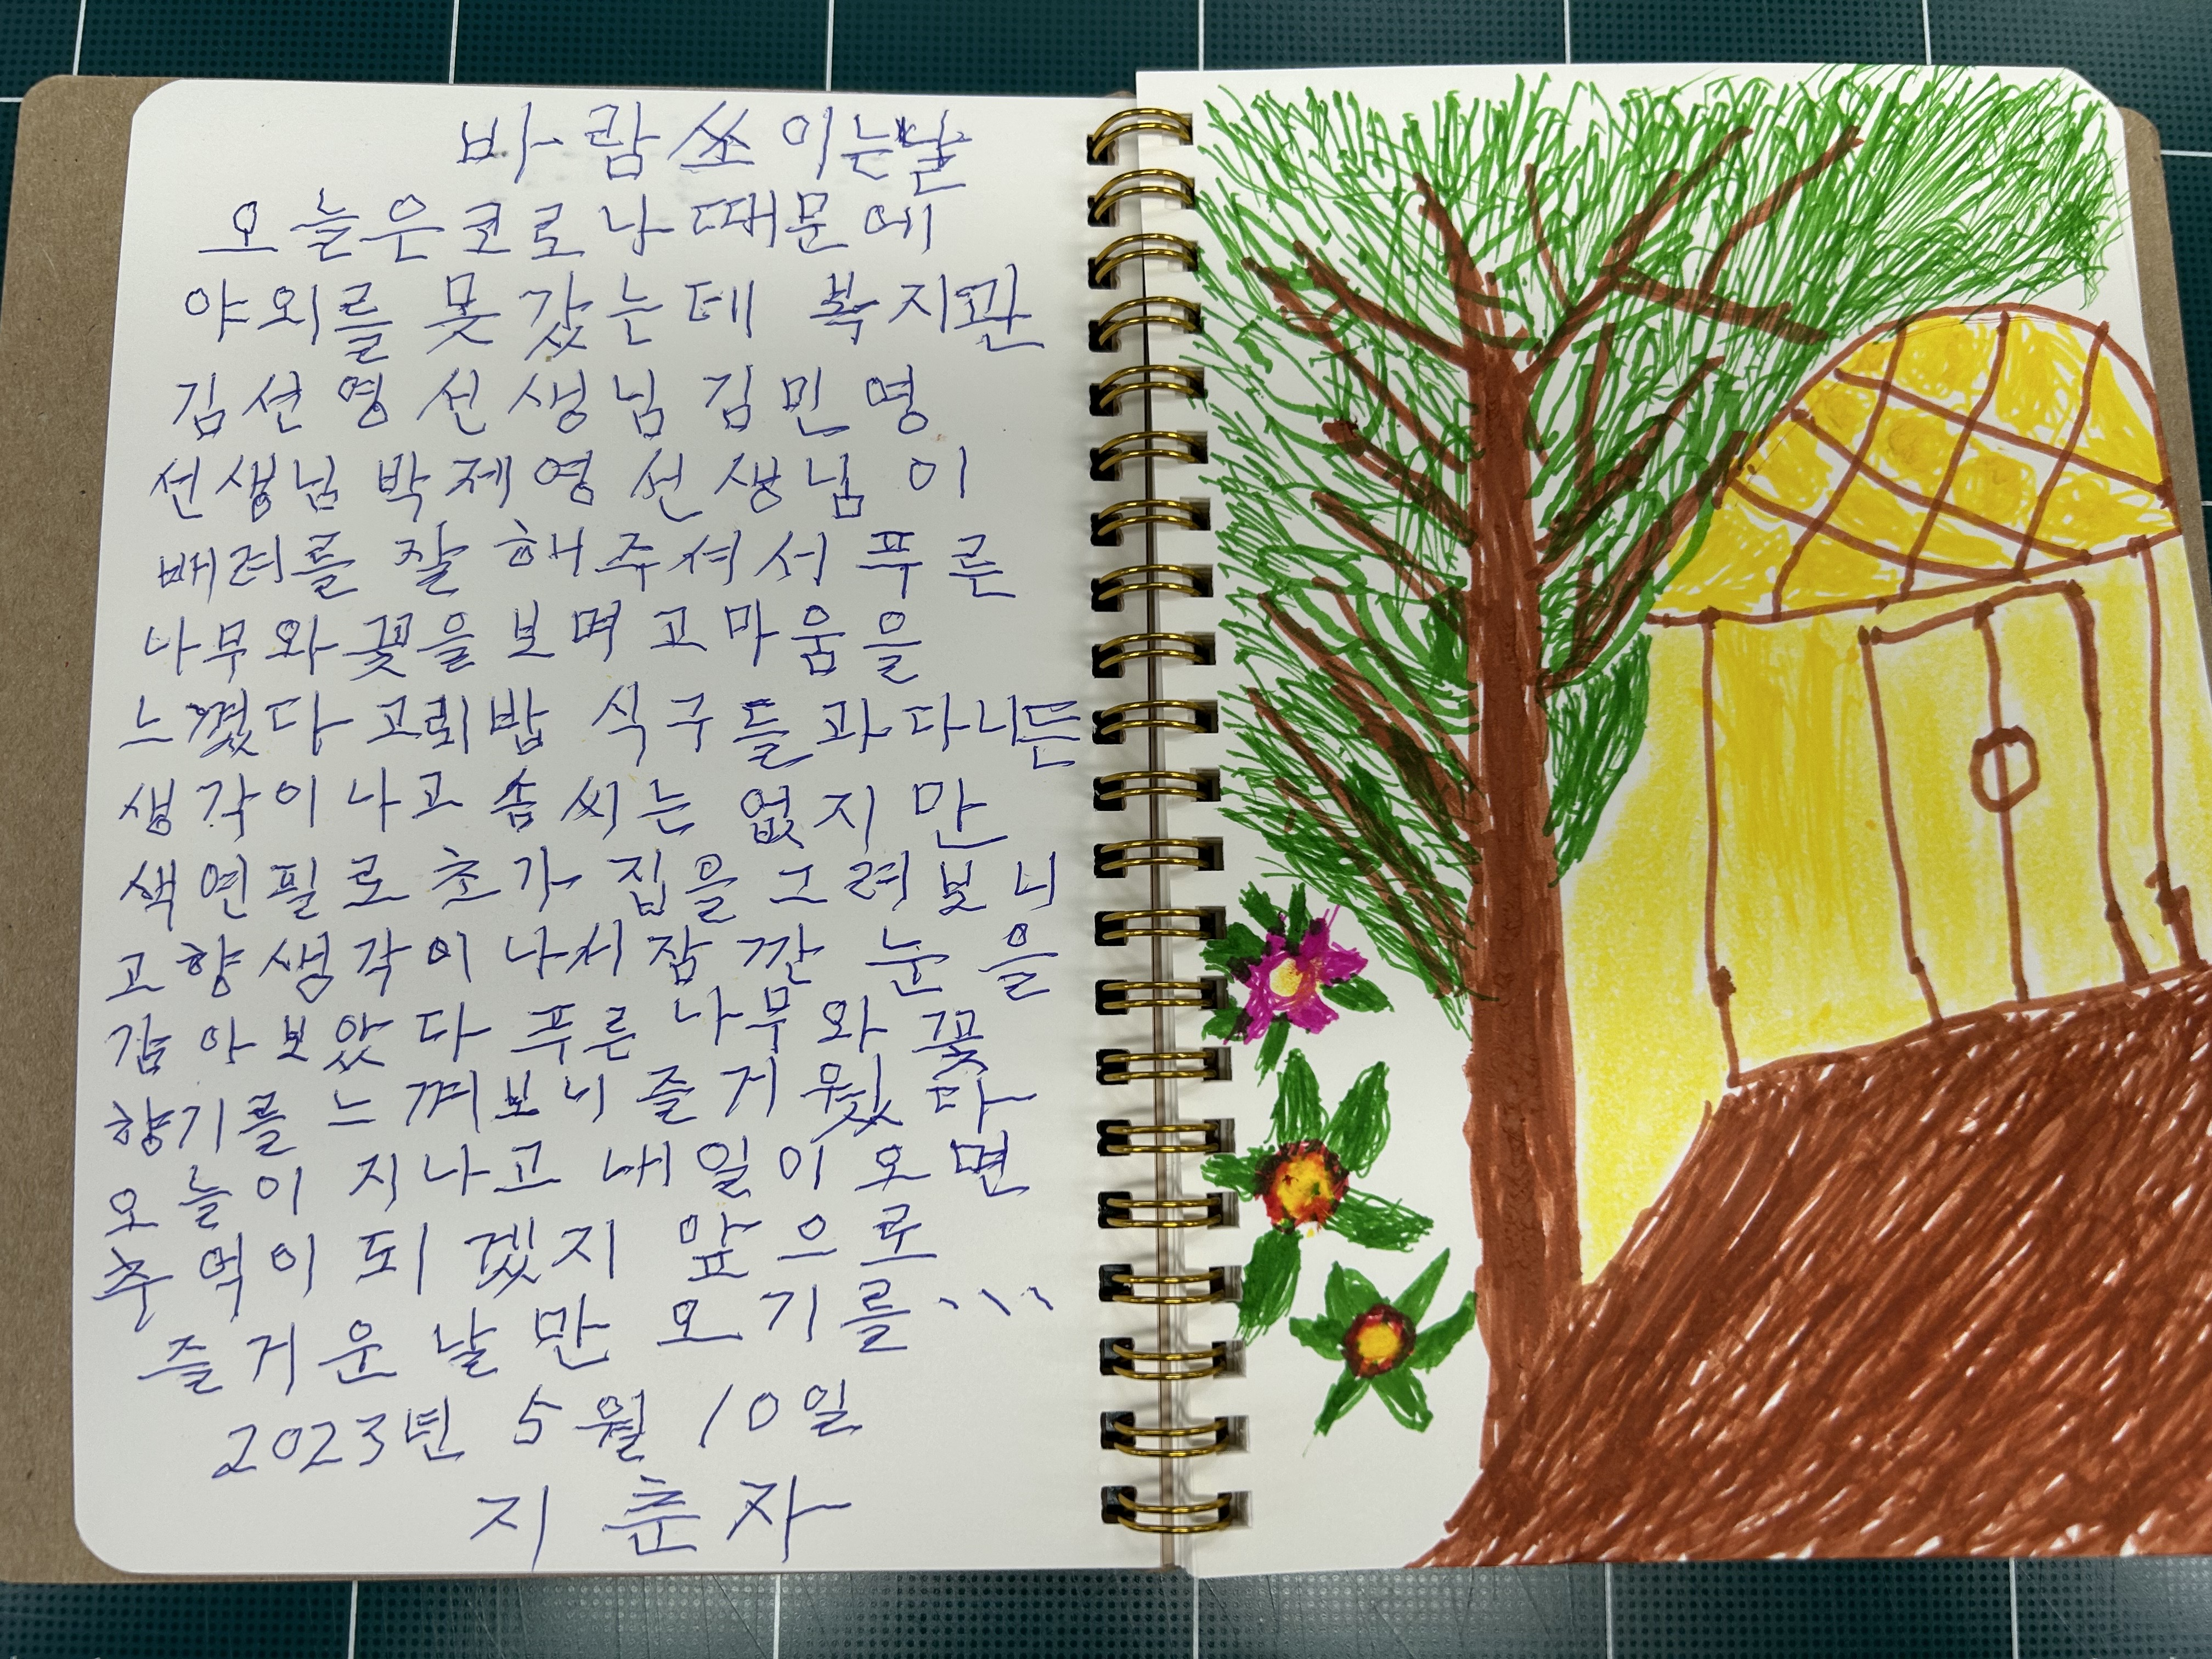 바람쏘이는날
오늘은코로나때문에
야외를 못갔는데 복지관
김선영선생님 김민영
선생님 박제영선생님이
배려를 잘해주셔서푸른
나무와꽃을보며고마움을
느꼈다 고뢰밥 식구들과다니든
생각이나고 솜씨는 없지만
색연필로초가집을그려보니
고향생각이나서잠깐 눈을
감아보았다푸른나무와꽃
향기를 느껴보니즐거웠다
오늘이 지나고 내일이오면
추억이되겠지 앞으로
즐거운날만 오기를...
2023년 5월 10일
지춘자